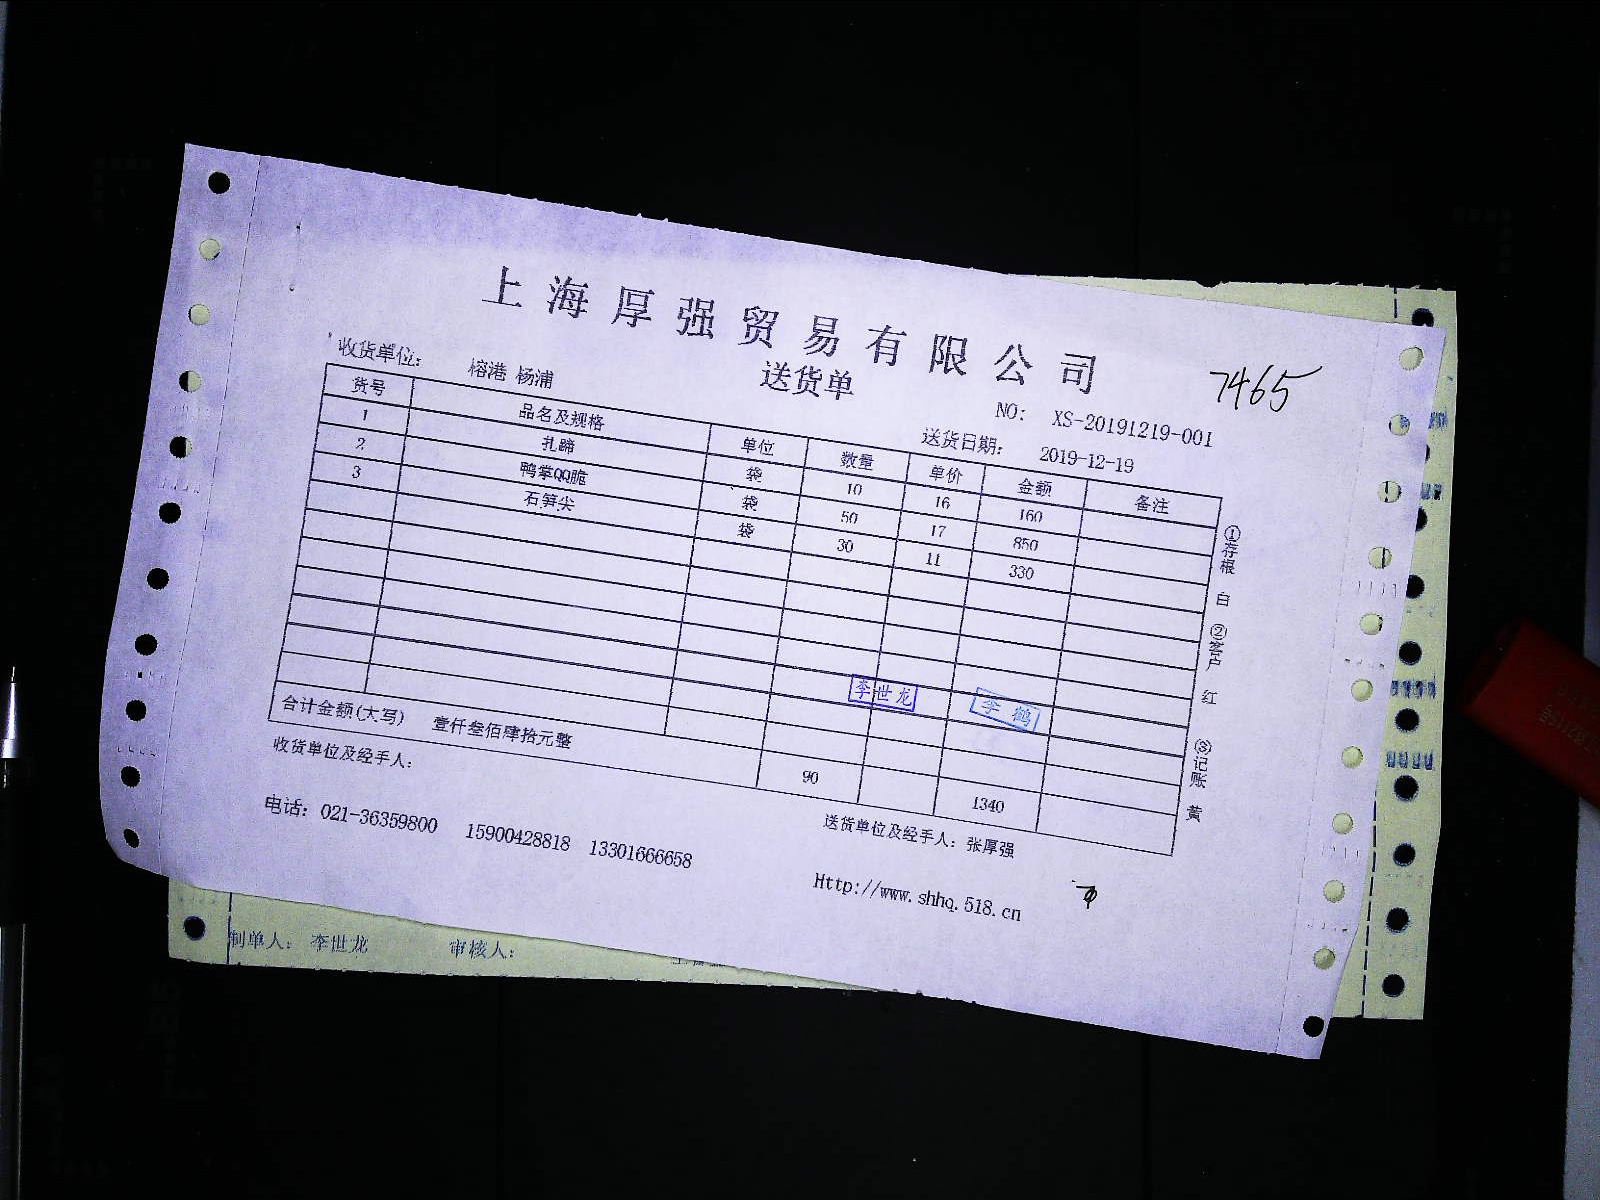 上海厚强贸易有限公司
送货单
7465
收货单位： 榕港 杨浦
NO: XS-20191219-001
送货日期： 2019-12-19
货号 品名及规格 单位 数量 单价 金额 备注
1 扎蹄 袋 10 16 160
2 鸭掌QQ脆 袋 50 17 850
3 石笋尖 袋 30 11 330
李世龙
李鹤
合计金额(大写) 壹仟叁佰肆拾元整 90 1340
收货单位及经手人：
送货单位及经手人：张厚强
电话：021-36359800 15900428818 13301666658
Http://www.shhq.518.cn
①存根 白 ②客户 红 ③记账 黄
制单人： 李世龙 审核人：